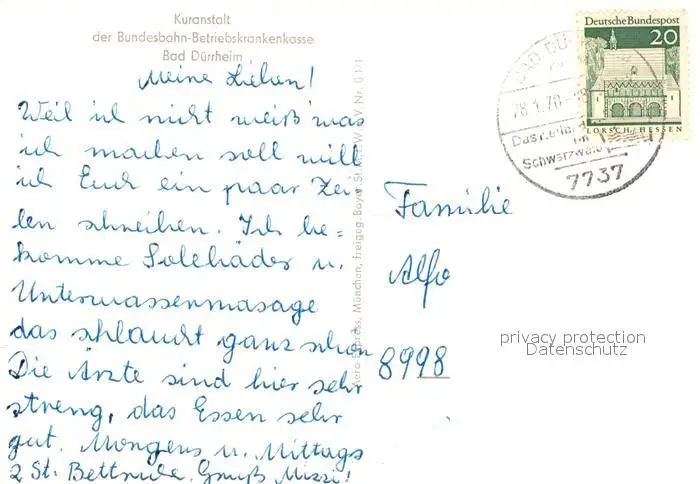 Kuranstalt
der Bundesbahn-Betriebskrankenkasse
Bad Dürrheim
Meine Lieben!
Weil ich nicht weiß was
ich machen soll will
ich Euch ein paar Zei
len schreiben. Ich be=
komme Solebäder u.
Unterwassermasage
das schlaucht ganz schön
Die Ärzte sind hier sehr
streng, das Essen sehr
gut. Morgens u. Mittags
2 St. Bettruhe. Gruß Mizzi!
Aero-Express, München, freigeg. Bayer. St.
Deutsche Bundespost
20
LORSCH/HESSEN
28.1.70
Schwarzwald
7737
Familie
Alfo
8998
privacy protection
Datenschutz